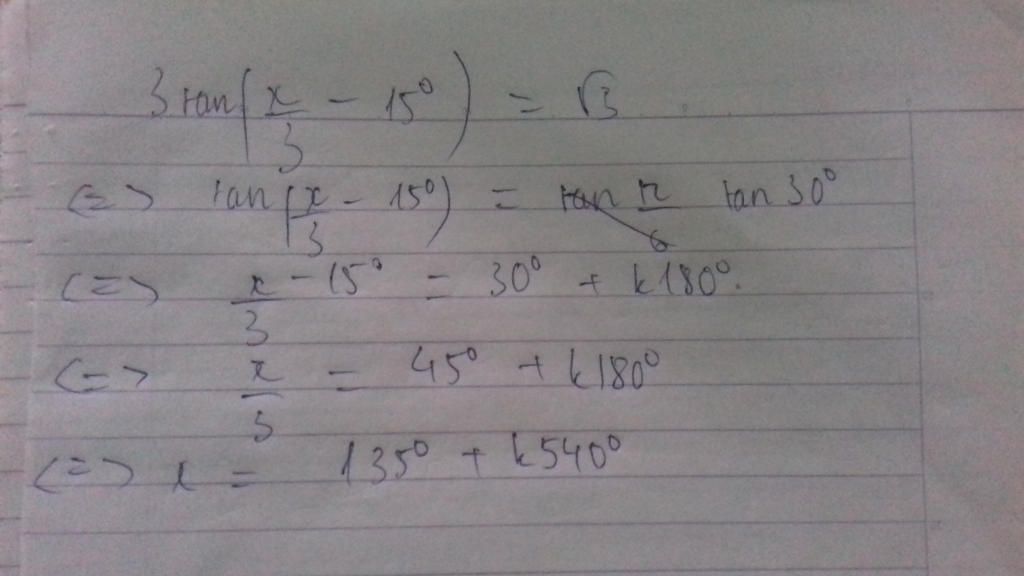 3 tan(x/3 - 15°) = √3
<=> tan(x/3 - 15°) = tan π/6 tan 30°
<=> x/3 - 15° = 30° + k180°.
<=> x/3 = 45° + k180°
<=> x = 135° + k540°